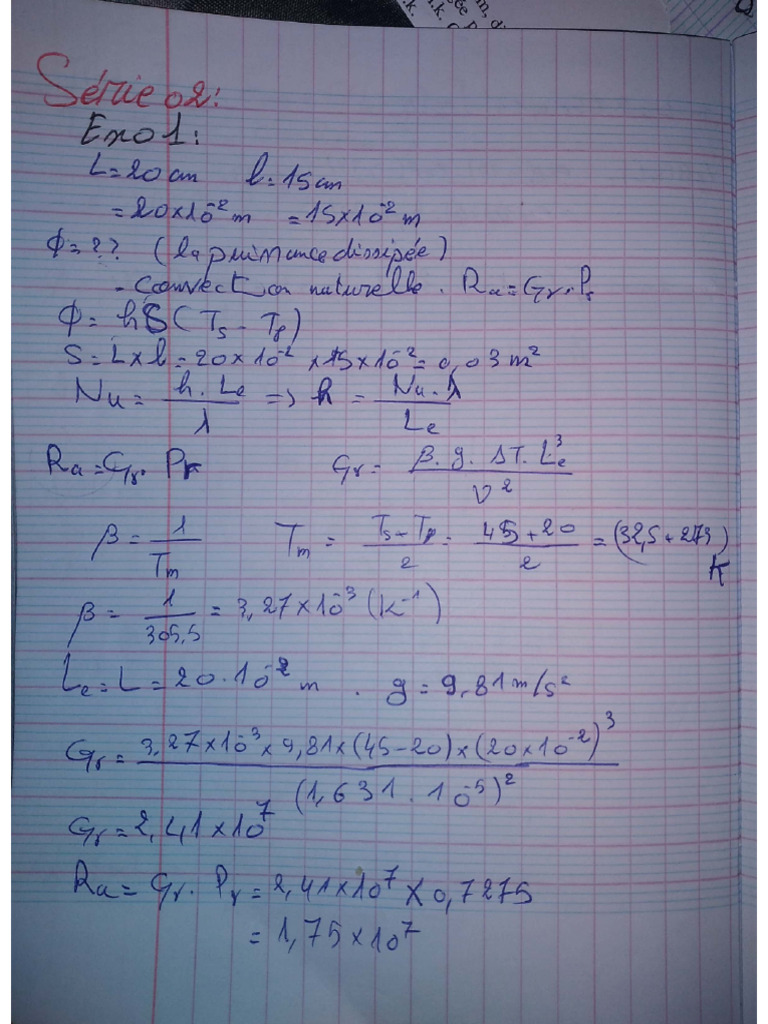 Série 02:
Exo 1:
L=20cm l=15cm
=20×10⁻² m =15×10⁻² m
Φ=?? (la puissance dissipée)
- Convection naturelle. Ra=Gr.Pr
Φ= hS(Ts - Tf)
S=L×l=20×10⁻²×15×10⁻²=0,03m²
Nu = h.Lc/λ => h = Nu.λ/Lc
Ra=Gr.Pr Gr= β.g.ΔT.Lc³/ν²
β=1/Tm Tm = Ts+Tf/2 = 45+20/2 =(32,5+273)K
β=1/305,5=3,27×10⁻³(K⁻¹)
Lc=L=20.10⁻² m. g=9,81m/s²
Gr=3,27×10⁻³×9,81×(45-20)×(20×10⁻²)³/(1,631.10⁻⁵)²
Gr=2,41×10⁷
Ra=Gr.Pr=2,41×10⁷×0,7275
=1,75×10⁷